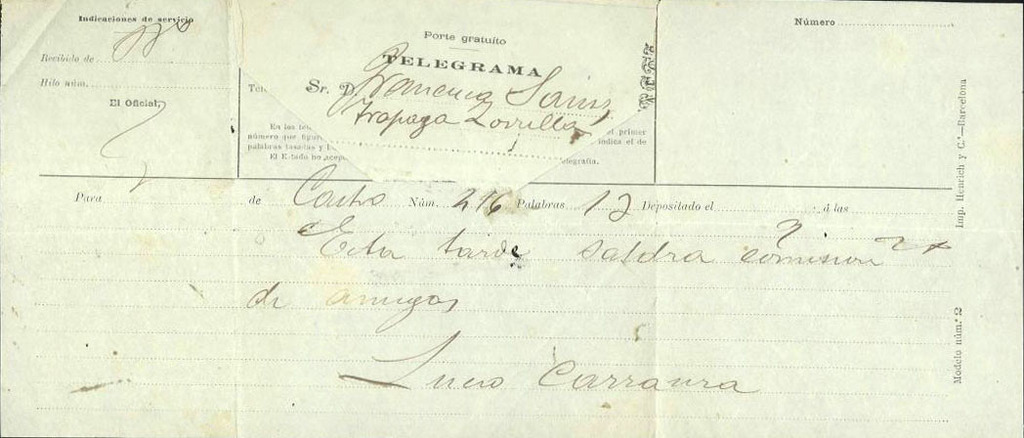 Indicaciones de servicio
Recibido de
Hilo núm.
El Oficial,
Porte gratuito
TELEGRAMA
Sr. D. Francisco Sainz
Trapaga Zorrilla
Número
En los
número que figur
palabras tasadas y
El Estado no acep
el primer
indica el de
telegrafía.
Para de Castro Núm. 216 Palabras 12 Depositado el á las
Esta tarde saldra comision
de amigos
Lucio Carranza
Imp. Henrich y C.ª—Barcelona
Modelo núm. 2